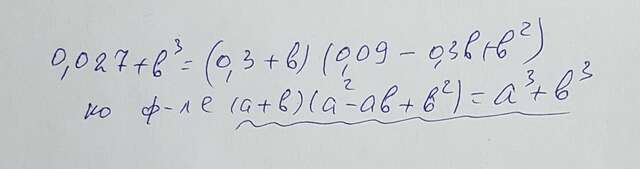 0,027+в³=(0,3+в)(0,09-0,3в+в²)
по ф-ле (а+в)(а²-ав+в²)=а³+в³